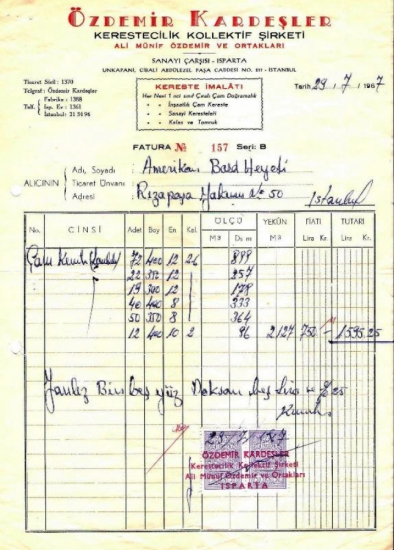 ÖZDEMİR KARDEŞLER
KERESTECİLİK KOLLEKTİF ŞİRKETİ
ALİ MÜNİF ÖZDEMİR VE ORTAKLARI
SANAYİ ÇARŞISI - ISPARTA
UNKAPANI, CİBALİ ABDÜLEZEL PAŞA CADDESİ NO. - İSTANBUL
Ticaret Sicil : 1370
Telgraf : Özdemir Kardeşler
Fabrika : 1398
Telf. Isp. Ev : 1361
İstanbul : 21 34 96
KERESTE İMALÂTI
Her Nevi 1 nci sınıf Çıralı Çam Doğramalık
" " İnşaatlık Çam Kereste
" " Sanayi Keresteleri
" " Kalas ve Tomruk
Tarih 29 / 7 / 1967
FATURA № 157 Seri: B
ALICININ
Adı, Soyadı Amerikan Bord Heyeti
Ticaret Ünvanı
Adresi Rızapaşa No 50 İstanbul
No. CİNSİ Adet Boy En Kal. ÖLÇÜ M3 Ds m YEKÜN M3 FİATI Lira Kr. TUTARI Lira Kr.
Çam 72 400 12 26 899
22 12 257
19 300 12 178
40 400 8 333
50 350 8 364
12 400 10 2 96 2127 750 — 1595.25
Yalnız Bin beş yüz Doksan beş Lira 25
29/7/1967
ÖZDEMİR KARDEŞLER
Kerestecilik Kollektif Şirketi
Ali Münif Özdemir ve Ortakları
ISPARTA